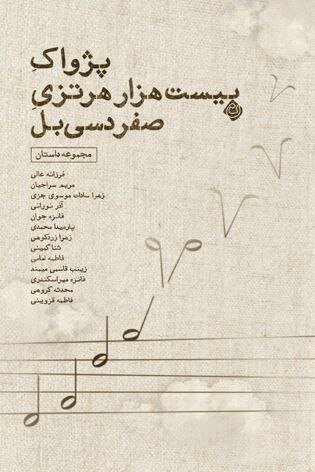 پژواکِ
بیست هزار هرتزیِ
صفر دسی‌بل
مجموعه داستان
فرزانه عالی
مریم سراجیان
زهرا سادات موسوی جزی
آذر نورانی
فائزه جوان
پارمیدا محمدی
زهرا زرتکوهی
ثنا گبینی
فاطمه امامی
زینب قاسمی میمند
فائزه میراسکندری
محدثه گروهی
فاطمه قزوینی